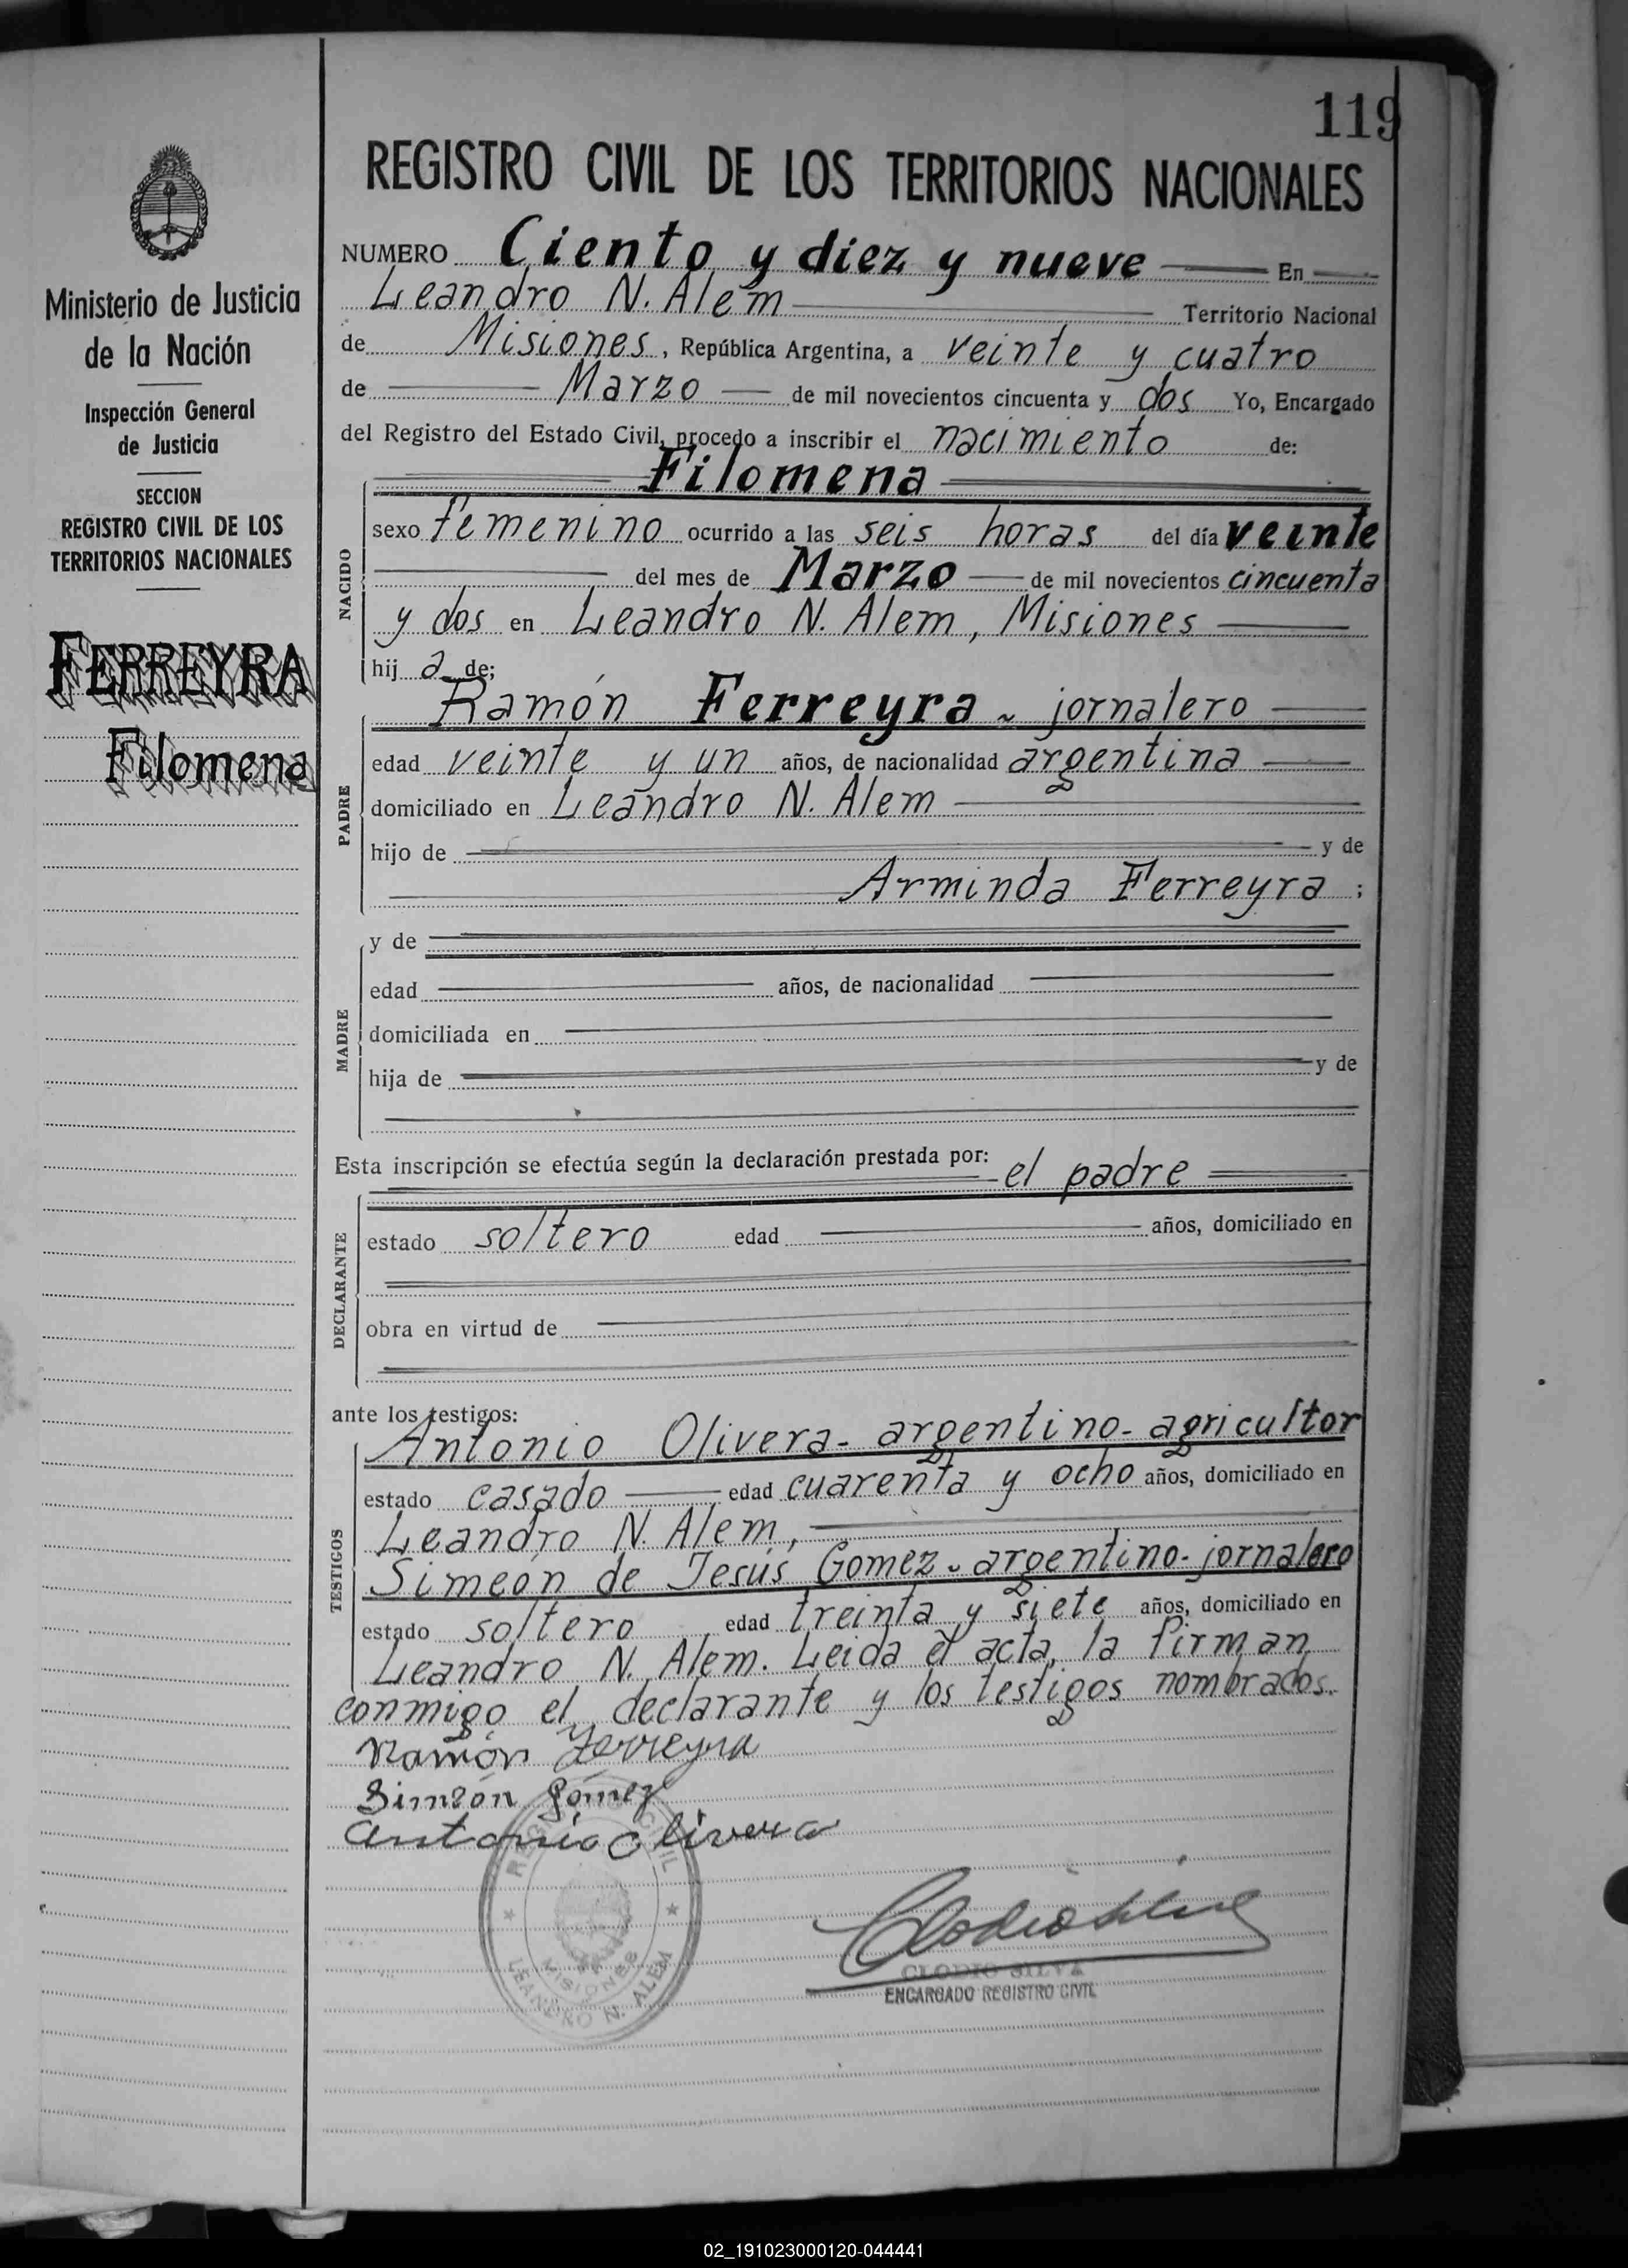 119
REGISTRO CIVIL DE LOS TERRITORIOS NACIONALES
Ministerio de Justicia
de la Nación
Inspección General
de Justicia
SECCION
REGISTRO CIVIL DE LOS
TERRITORIOS NACIONALES
FERREYRA
Filomena
NUMERO Ciento y diez y nueve En
Leandro N. Alem Territorio Nacional
de Misiones, República Argentina, a veinte y cuatro
de Marzo de mil novecientos cincuenta y dos Yo, Encargado
del Registro del Estado Civil, procedo a inscribir el nacimiento de:
Filomena
NACIDO
sexo femenino ocurrido a las seis horas del día veinte
del mes de Marzo de mil novecientos cincuenta
y dos en Leandro N. Alem, Misiones
hij a de;
PADRE
Ramón Ferreyra - jornalero
edad veinte y un años, de nacionalidad argentina
domiciliado en Leandro N. Alem
hijo de y de
Arminda Ferreyra ;
MADRE
y de
edad años, de nacionalidad
domiciliada en
hija de y de
Esta inscripción se efectúa según la declaración prestada por:
el padre
DECLARANTE
estado soltero edad años, domiciliado en
obra en virtud de
ante los testigos:
TESTIGOS
Antonio Olivera - argentino - agricultor
estado casado edad cuarenta y ocho años, domiciliado en
Leandro N. Alem,
Simeón de Jesús Gomez - argentino - jornalero
estado soltero edad treinta y siete años, domiciliado en
Leandro N. Alem. Leida el acta, la firman
conmigo el declarante y los testigos nombrados.
Ramón Ferreyra
Simeón Gómez
Antonio Olivera
REGISTRO CIVIL
MISIONES
LEANDRO N. ALEM
Clodio Silva
CLODIO SILVA
ENCARGADO REGISTRO CIVIL
02_191023000120-044441